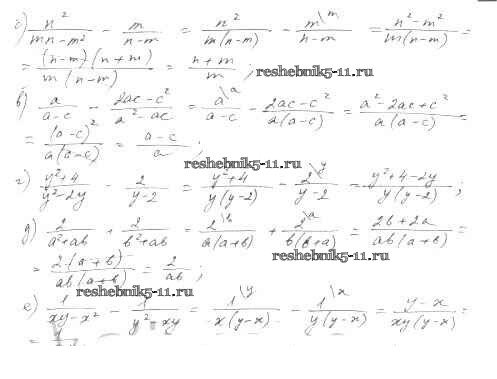 б) n²/(mn-m²) - m/(n-m) = n²/(m(n-m)) - m\m/(n-m) = (n²-m²)/(m(n-m)) =
= ((n-m)(n+m))/(m(n-m)) = (n+m)/m ; reshebnik5-11.ru
в) a/(a-c) - (2ac-c²)/(a²-ac) = a\a/(a-c) - (2ac-c²)/(a(a-c)) = (a²-2ac+c²)/(a(a-c)) =
= (a-c)²/(a(a-c)) = (a-c)/a ;
reshebnik5-11.ru
г) (y²+4)/(y²-2y) - 2/(y-2) = (y²+4)/(y(y-2)) - 2\y/(y-2) = (y²+4-2y)/(y(y-2)) ;
д) 2/(a²+ab) + 2/(b²+ab) = 2\b/(a(a+b)) + 2\a/(b(b+a)) = (2b+2a)/(ab(a+b)) =
reshebnik5-11.ru
= (2·(a+b))/(ab(a+b)) = 2/(ab) ;
reshebnik5-11.ru
е) 1/(xy-x²) - 1/(y²-xy) = 1\y/(x(y-x)) - 1\x/(y(y-x)) = (y-x)/(xy(y-x)) =
=